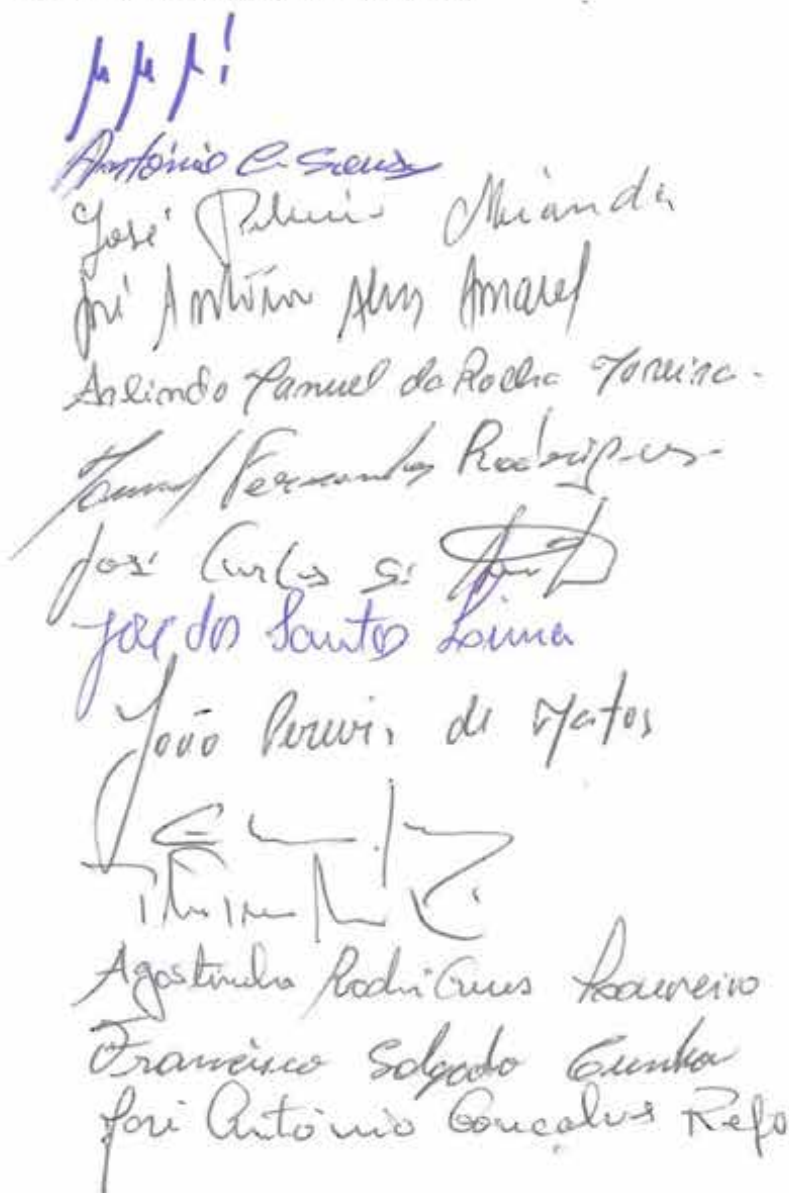 António C. Sousa
José Miranda
José António Alves Amaral
Arlindo Manuel da Rocha Moreira.
Manuel Fernandes Rodrigues
José Carlos S.
José dos Santos Lima
João Pereira de Matos
Agostinho Rodrigues Loureiro
Francisco Salgado Cunha
José António Gonçalves Rego